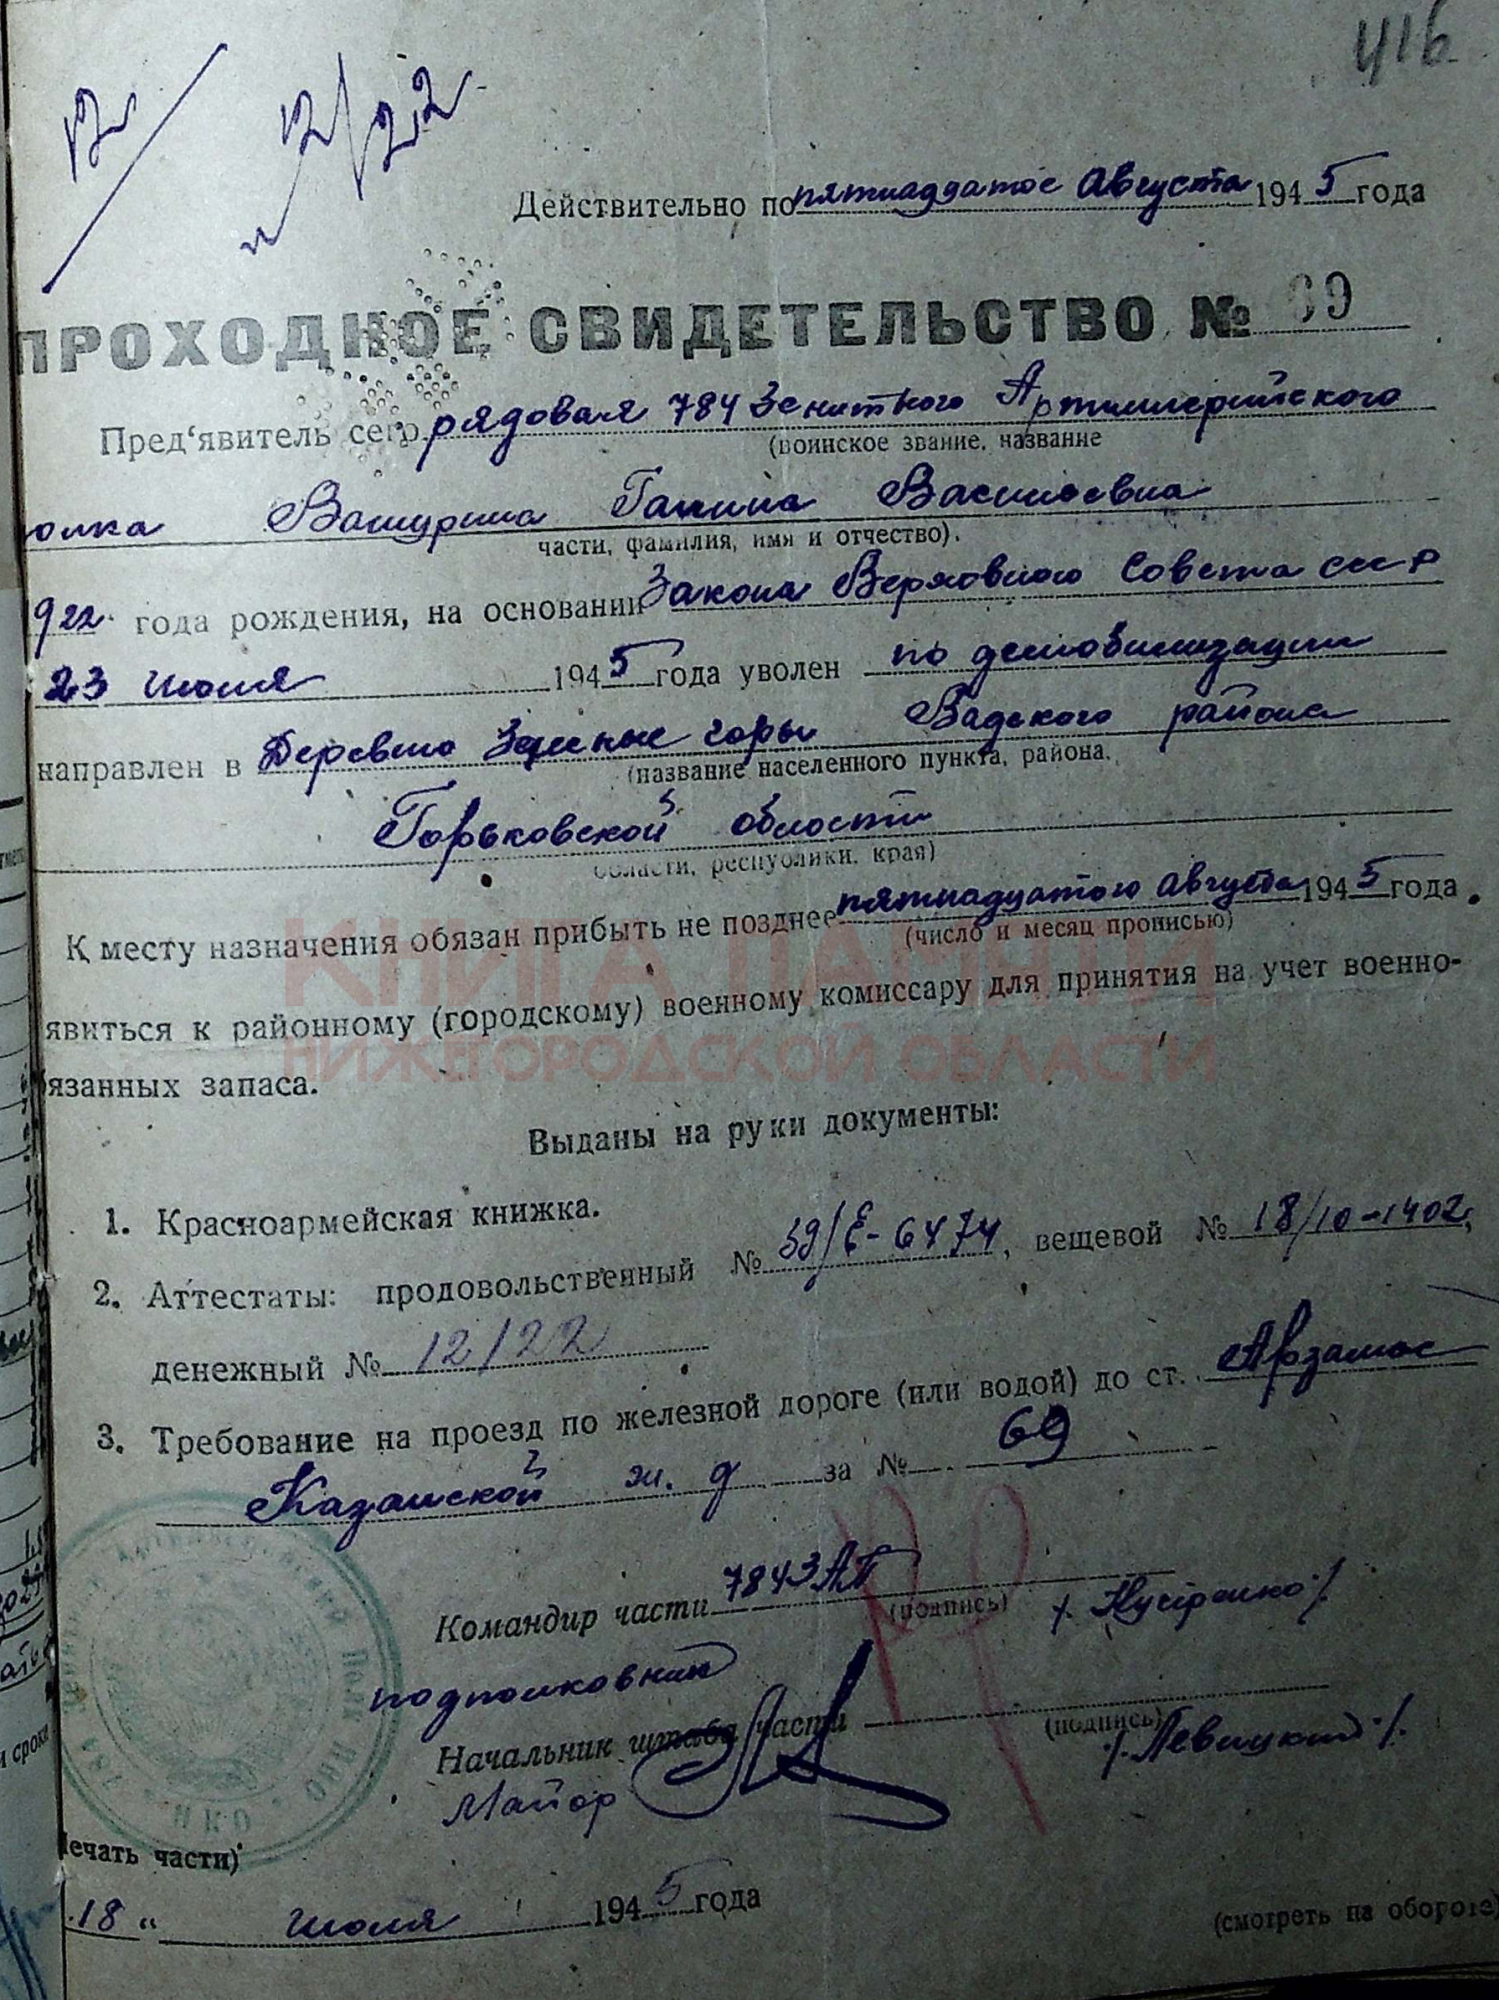 416
12
12/22
Действительно по пятнаддатое Августа 1945 года
ПРОХОДНОЕ СВИДЕТЕЛЬСТВО № 69
Пред'явитель сего рядовая 784 Зенитного Артиллерийского
(воинское звание, название
олка Вашурина Галина Васильевна
части, фамилия, имя и отчество).
922 года рождения, на основании Закона Верховного Совета СССР
23 июня 1945 года уволен по демобилизации
направлен в Деревню Зеленые горы Вадского района
(название населенного пункта, района,
Горьковской области
области, республики, края)
К месту назначения обязан прибыть не позднее пятнадцатого Августа 1945 года.
(число и месяц прописью)
явиться к районному (городскому) военному комиссару для принятия на учет военно-
язанных запаса.
КНИГА ПАМЯТИ
НИЖЕГОРОДСКОЙ ОБЛАСТИ
Выданы на руки документы:
1. Красноармейская книжка.
2. Аттестаты: продовольственный № 39/Е-6474, вещевой № 18/10-1402,
денежный № 12/22
3. Требование на проезд по железной дороге (или водой) до ст. Арзамас
Казанской ж. д за № 69
Командир части 784 ЗАП
(подпись)
подполковник
Начальник штаба части
(подпись)
/.Левицкий./
Майор
Печать части)
18 " июля 1945 года
(смотреть на обороте)